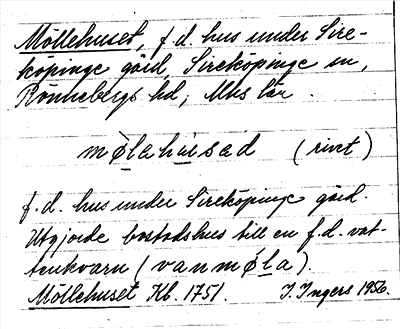 Möllehuset, f.d. hus under Sire-
köpinge gård, Sireköpinge sn,
Rönnebergs hd, Mhs län.
mø̀lahúsad (rint)
f.d. hus under Sireköpinge gård.
Utgjorde bostadshus till en f.d. vat-
tenkvarn (vanmǿla).
Möllehuset Kb. 1751. I. Ingers 1956.